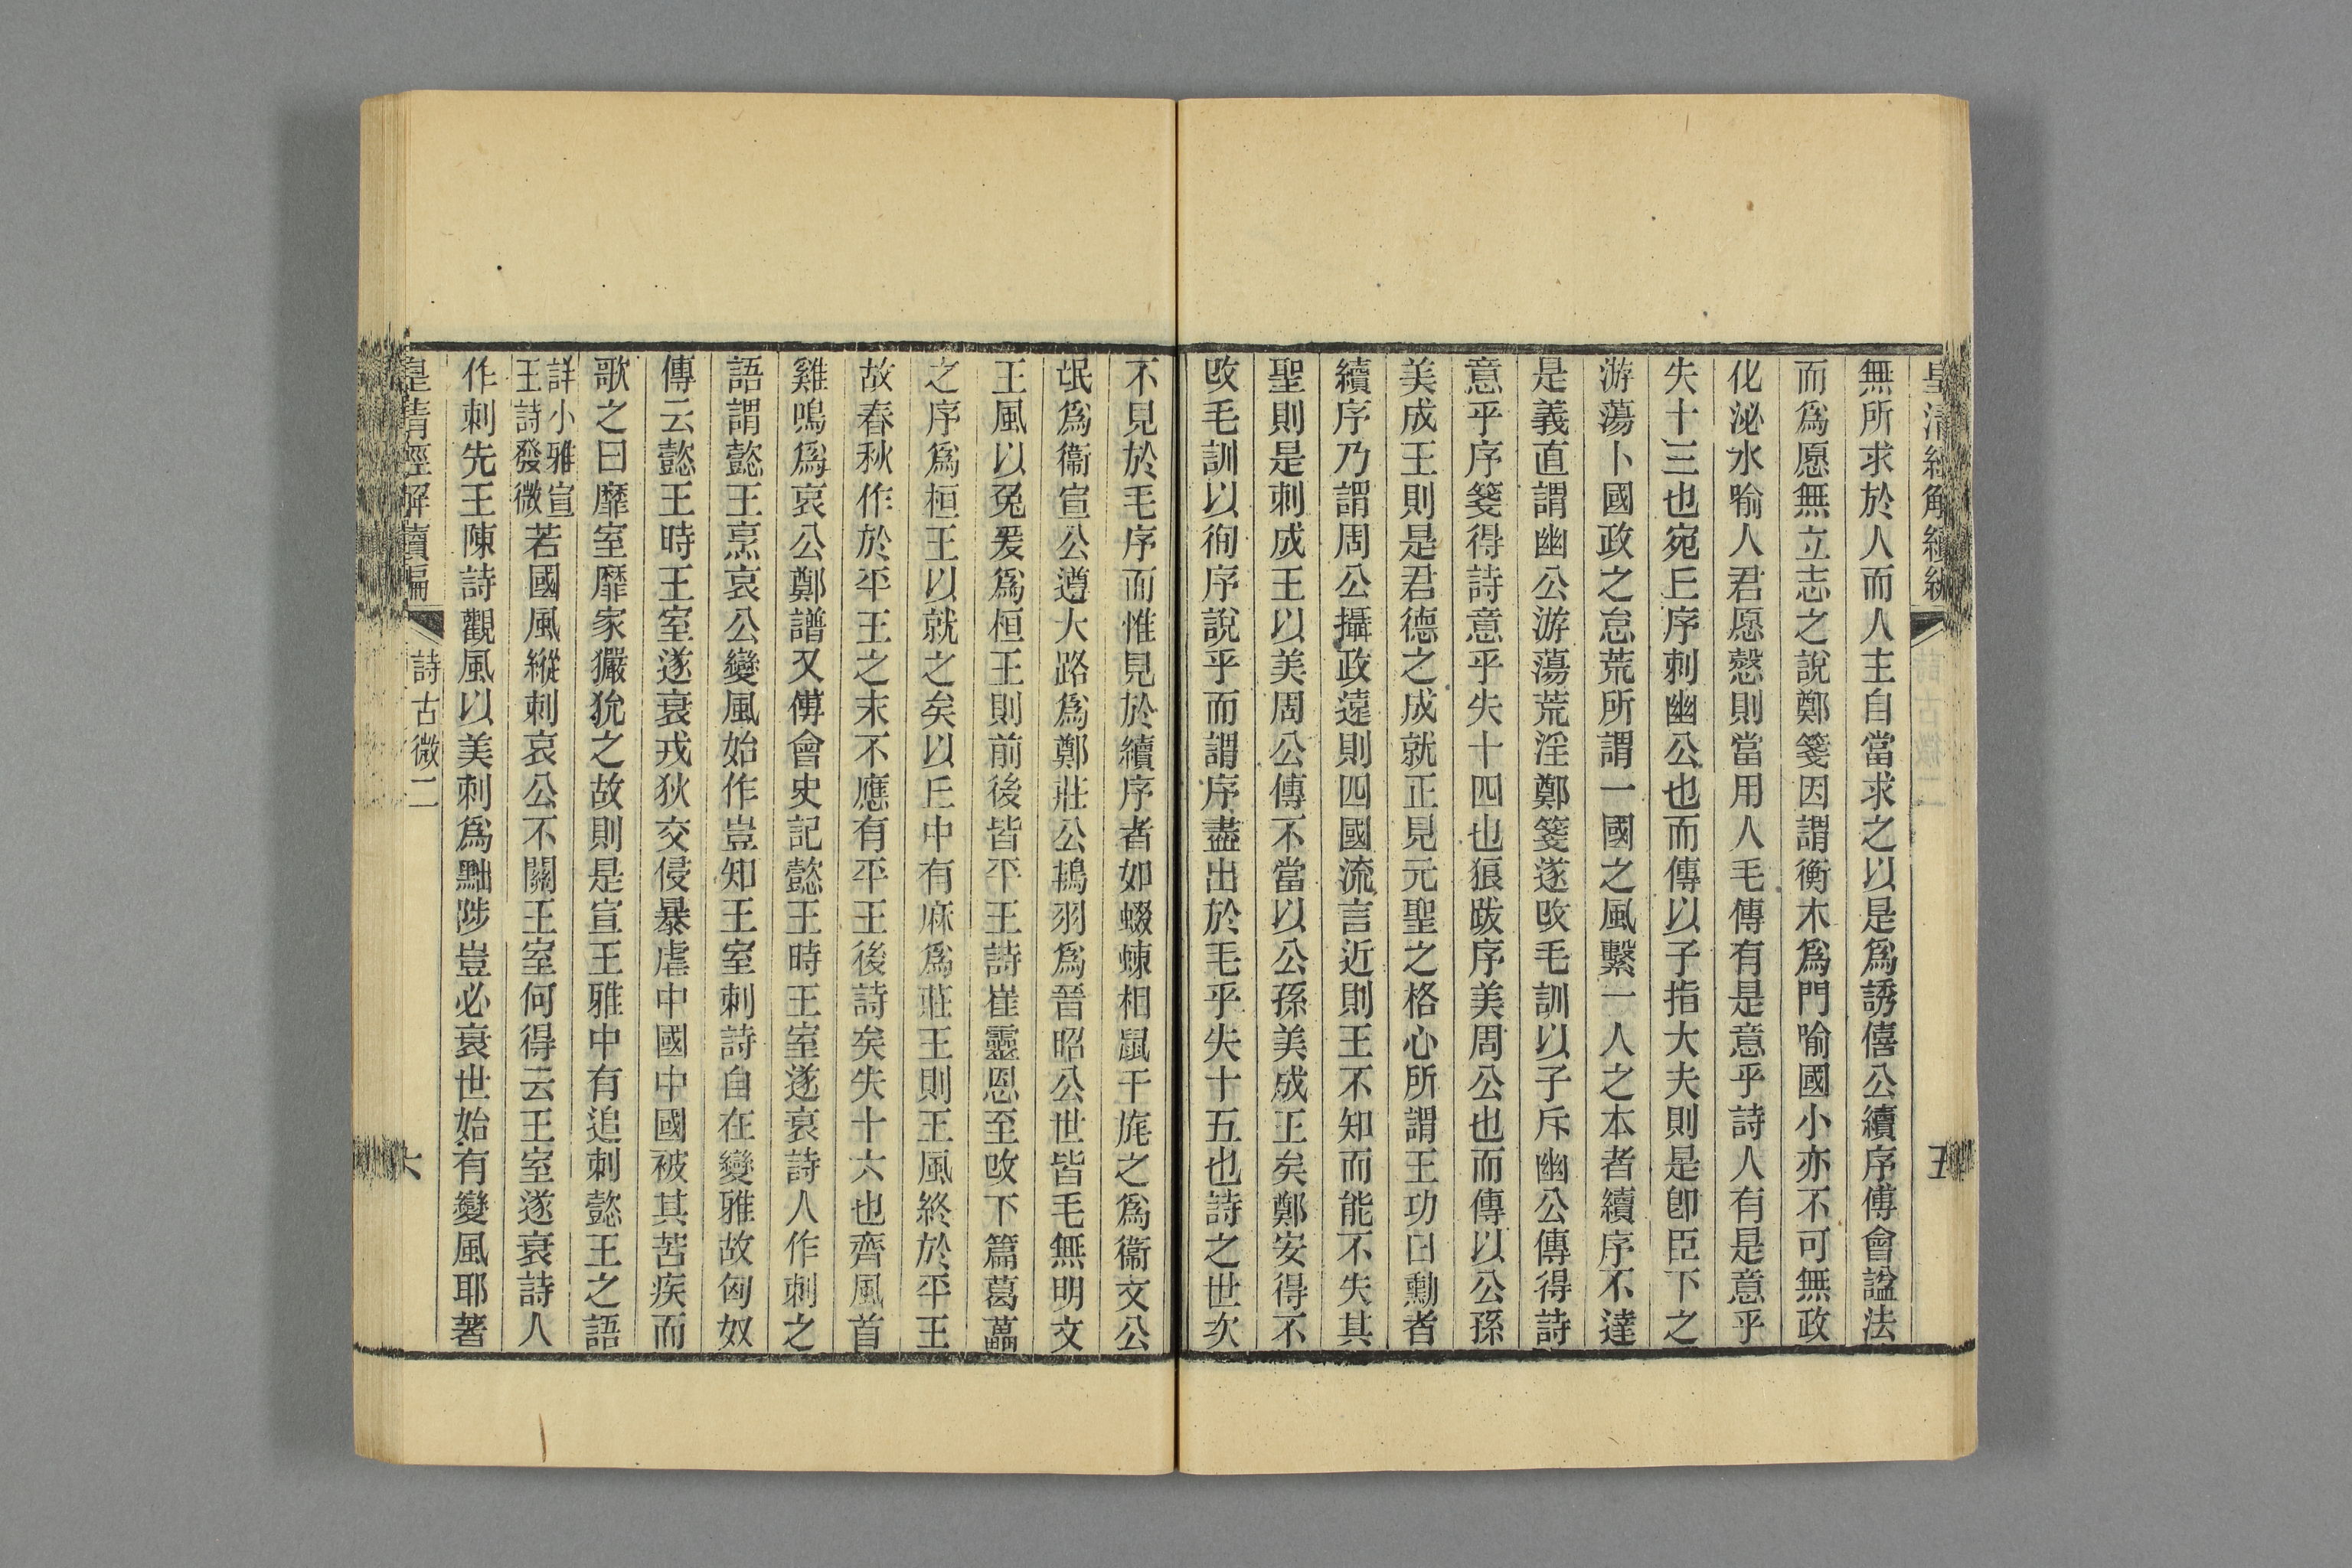 皇清經解續編
五
無所求於人而人主自當求之以是爲誘僖公續序傅會謚法
而爲愿無立志之說鄭箋因謂衡木爲門喻國小亦不可無政
化泌水喻人君愿慤則當用人毛傳有是意乎詩人有是意乎
失十三也宛丘序刺幽公也而傳以子指大夫則是卽臣下之
游蕩卜國政之怠荒所謂一國之風繫一人之本者續序不達
是義直謂幽公游蕩荒淫鄭箋遂改毛訓以子斥幽公傳得詩
意乎序箋得詩意乎失十四也狼跋序美周公也而傳以公孫
美成王則是君德之成就正見元聖之格心所謂王功曰勳者
續序乃謂周公攝政遠則四國流言近則王不知而能不失其
聖則是刺成王以美周公傳不當以公孫美成王矣鄭安得不
改毛訓以徇序說乎而謂序盡出於毛乎失十五也詩之世次
不見於毛序而惟見於續序者如蝃蝀相鼠干旄之爲衞文公
氓爲衞宣公遵大路爲鄭莊公鴇羽爲晉昭公世皆毛無明文
王風以兔爰爲桓王則前後皆平王詩崔靈恩至改下篇葛藟
之序爲桓王以就之矣以丘中有麻爲莊王則王風終於平王
故春秋作於平王之末不應有平王後詩矣失十六也齊風首
雞鳴爲哀公鄭譜又傅會史記懿王時王室遂衰詩人作刺之
語謂懿王烹哀公變風始作豈知王室刺詩自在變雅故匈奴
傳云懿王時王室遂衰戎狄交侵暴虐中國中國被其苦疾而
歌之曰靡室靡家玁狁之故則是宣王雅中有追刺懿王之語
詳小雅宣
王詩發微
若國風縱刺哀公不關王室何得云王室遂衰詩人
作刺先王陳詩觀風以美刺爲黜陟豈必衰世始有變風耶著
皇清經解續編
詩古微二
六